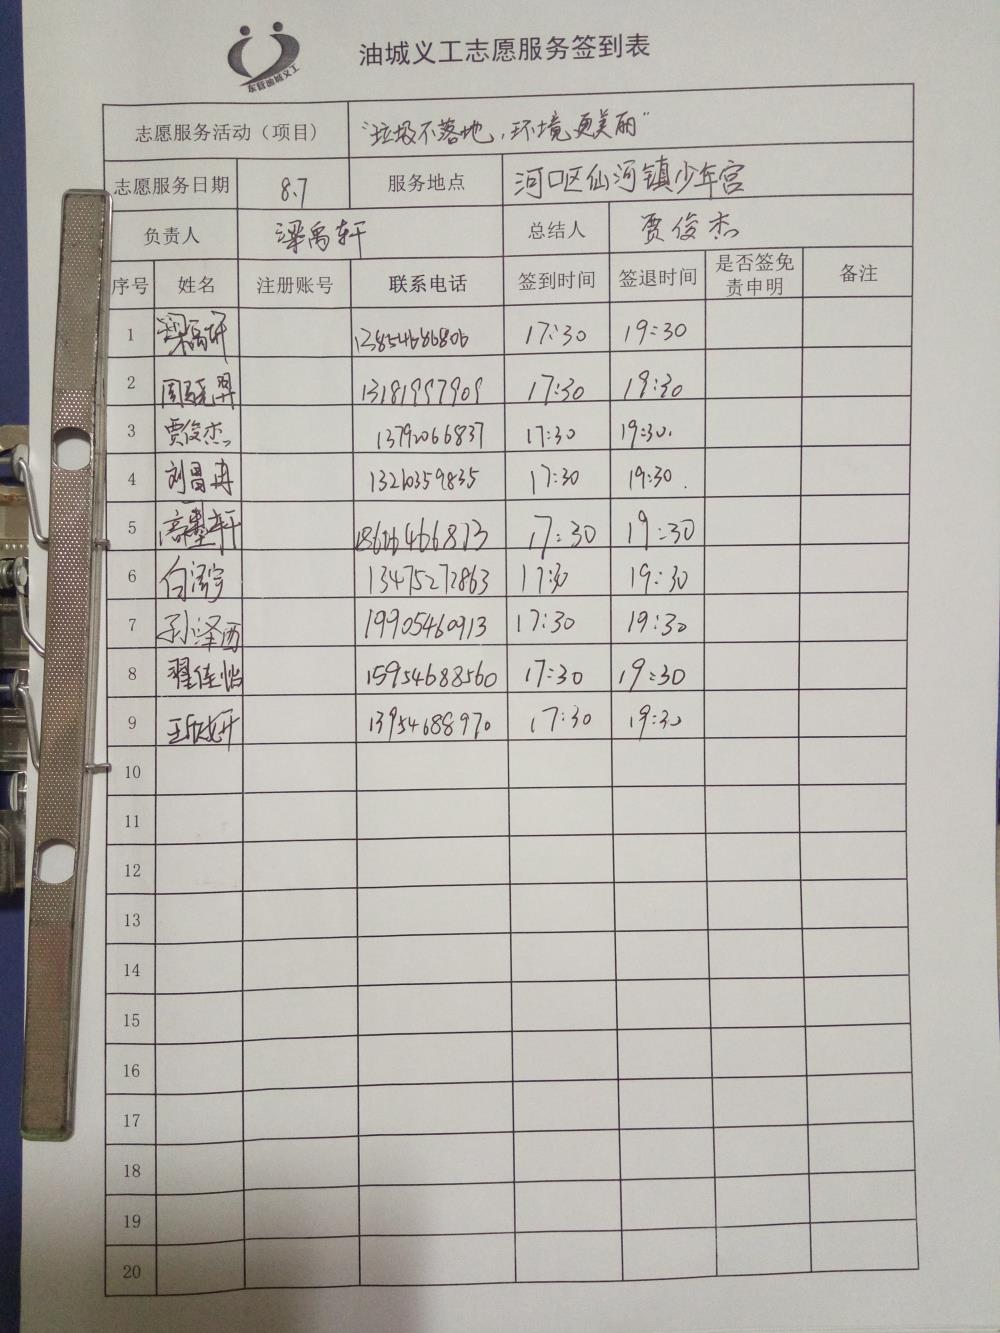 东营油城义工
油城义工志愿服务签到表
志愿服务活动（项目） “垃圾不落地，环境更美丽”
志愿服务日期 8.7 服务地点 河口区仙河镇少年宫
负责人 梁禹轩 总结人 贾俊杰
序号 姓名 注册账号 联系电话 签到时间 签退时间 是否签免责申明 备注
1 梁禹轩 13854686806 17:30 19:30
2 13181997909 17:30 19:30
3 贾俊杰 13792066837 17:30 19:30.
4 刘昌冉 13210359835 17:30 19:30.
5 17:30 19:30
6 13475272863 17:30 19:30
7 孙泽西 19905460913 17:30 19:30
8 翟佳怡 15954688560 17:30 19:30
9 13954688970 17:30 19:30
10
11
12
13
14
15
16
17
18
19
20